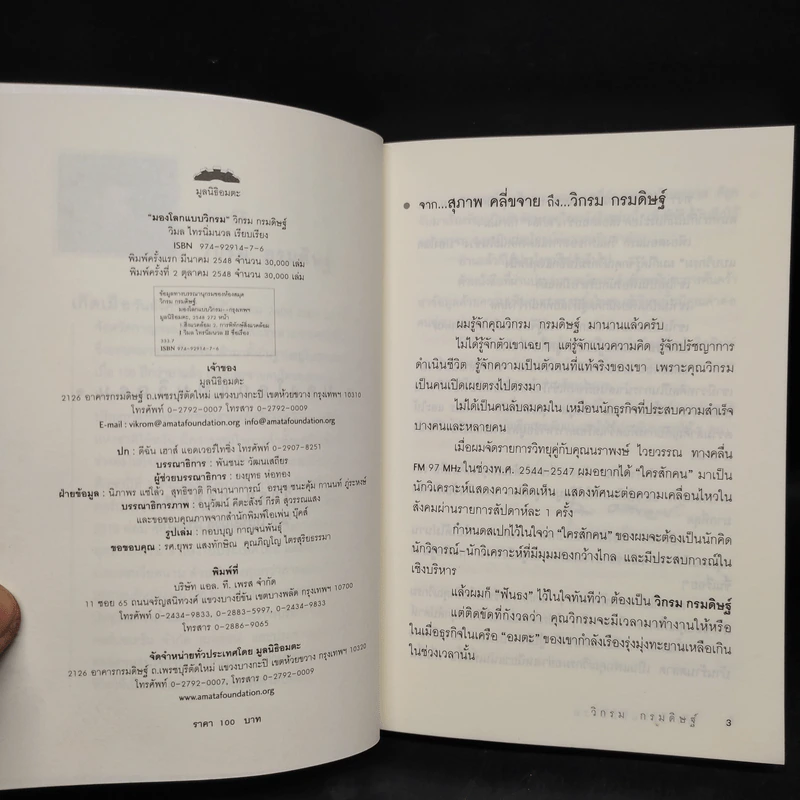 มูลนิธิอมตะ
"มองโลกแบบวิกรม" วิกรม กรมดิษฐ์
วิมล ไทรนิ่มนวล เรียบเรียง
ISBN 974-92914-7-6
พิมพ์ครั้งแรก มีนาคม 2548 จำนวน 30,000 เล่ม
พิมพ์ครั้งที่ 2 ตุลาคม 2548 จำนวน 30,000 เล่ม
ข้อมูลทางบรรณานุกรมของห้องสมุด
วิกรม กรมดิษฐ์
มองโลกแบบวิกรม--กรุงเทพฯ
มูลนิธิอมตะ, 2548 272 หน้า
1.สิ่งแวดล้อม 2. การพิทักษ์สิ่งแวดล้อม
I วิมล ไทรนิ่มนวล II ชื่อเรื่อง
333.7
ISBN 974-92914-7-6
เจ้าของ
มูลนิธิอมตะ
2126 อาคารกรมดิษฐ์ ถ.เพชรบุรีตัดใหม่ แขวงบางกะปิ เขตห้วยขวาง กรุงเทพฯ 10310
โทรศัพท์ 0-2792-0007 โทรสาร 0-2792-0009
E-mail : vikrom@amatafoundation.org info@amatafoundation.org
ปก : ดีฉัน เฮาส์ แอดเวอร์ไทซิ่ง โทรศัพท์ 0-2907-8251
บรรณาธิการ : พันชนะ วัฒนเสถียร
ผู้ช่วยบรรณาธิการ : ยงยุทธ ห่อทอง
ฝ่ายข้อมูล : นิภาพร แซ่ไล้ว สุทธิชาติ กิจนานาการณ์ อรนุช ชนะคุ้ม กานนท์ ภู่ระหงษ์
บรรณาธิการภาพ : อนุวัฒน์ คีตะสังข์ กีรติ สุวรรณแสง
และขอขอบคุณภาพจากสำนักพิมพ์โอเพ่น บุ๊คส์
รูปเล่ม : กอบบุญ กาญจนพันธุ์
ขอขอบคุณ : รศ.ยุพร แสงทักษิณ คุณภิญโญ ไตรสุริยธรรมา
พิมพ์ที่
บริษัท แอล. ที. เพรส จำกัด
11 ซอย 65 ถนนจรัญสนิทวงศ์ แขวงบางยี่ขัน เขตบางพลัด กรุงเทพฯ 10700
โทรศัพท์ 0-2434-9833, 0-2883-5997, 0-2434-9833
โทรสาร 0-2886-9065
จัดจำหน่ายทั่วประเทศโดย มูลนิธิอมตะ
2126 อาคารกรมดิษฐ์ ถ.เพชรบุรีตัดใหม่ แขวงบางกะปิ เขตห้วยขวาง กรุงเทพฯ 10320
โทรศัพท์ 0-2792-0007, โทรสาร 0-2792-0009
www.amatafoundation.org
ราคา 100 บาท
จาก...สุภาพ คลี่ขจาย ถึง...วิกรม กรมดิษฐ์
ผมรู้จักคุณวิกรม กรมดิษฐ์ มานานแล้วครับ
ไม่ได้รู้จักตัวเขาเฉยๆ แต่รู้จักแนวความคิด รู้จักปรัชญาการ
ดำเนินชีวิต รู้จักความเป็นตัวตนที่แท้จริงของเขา เพราะคุณวิกรม
เป็นคนเปิดเผยตรงไปตรงมา
ไม่ได้เป็นคนลับลมคมใน เหมือนนักธุรกิจที่ประสบความสำเร็จ
บางคนและหลายคน
เมื่อผมจัดรายการวิทยุคู่กับคุณนราพงษ์ ไวยวรรณ ทางคลื่น
FM 97 MHz ในช่วงพ.ศ. 2544-2547 ผมอยากได้ "ใครสักคน" มาเป็น
นักวิเคราะห์แสดงความคิดเห็น แสดงทัศนะต่อความเคลื่อนไหวใน
สังคมผ่านรายการสัปดาห์ละ 1 ครั้ง
กำหนดสเปกไว้ในใจว่า "ใครสักคน" ของผมจะต้องเป็นนักคิด
นักวิจารณ์-นักวิเคราะห์ที่มีมุมมองกว้างไกล และมีประสบการณ์ใน
เชิงบริหาร
แล้วผมก็ "ฟันธง" ไว้ในใจทันทีว่า ต้องเป็น วิกรม กรมดิษฐ์
แต่ติดขัดที่กังวลว่า คุณวิกรมจะมีเวลามาทำงานให้หรือ
ในเมื่อธุรกิจในเครือ "อมตะ" ของเขากำลังเรืองรุ่งพุ่งทะยานเหลือเกิน
ในช่วงเวลานั้น
วิกรม กรมดิษฐ์ 3